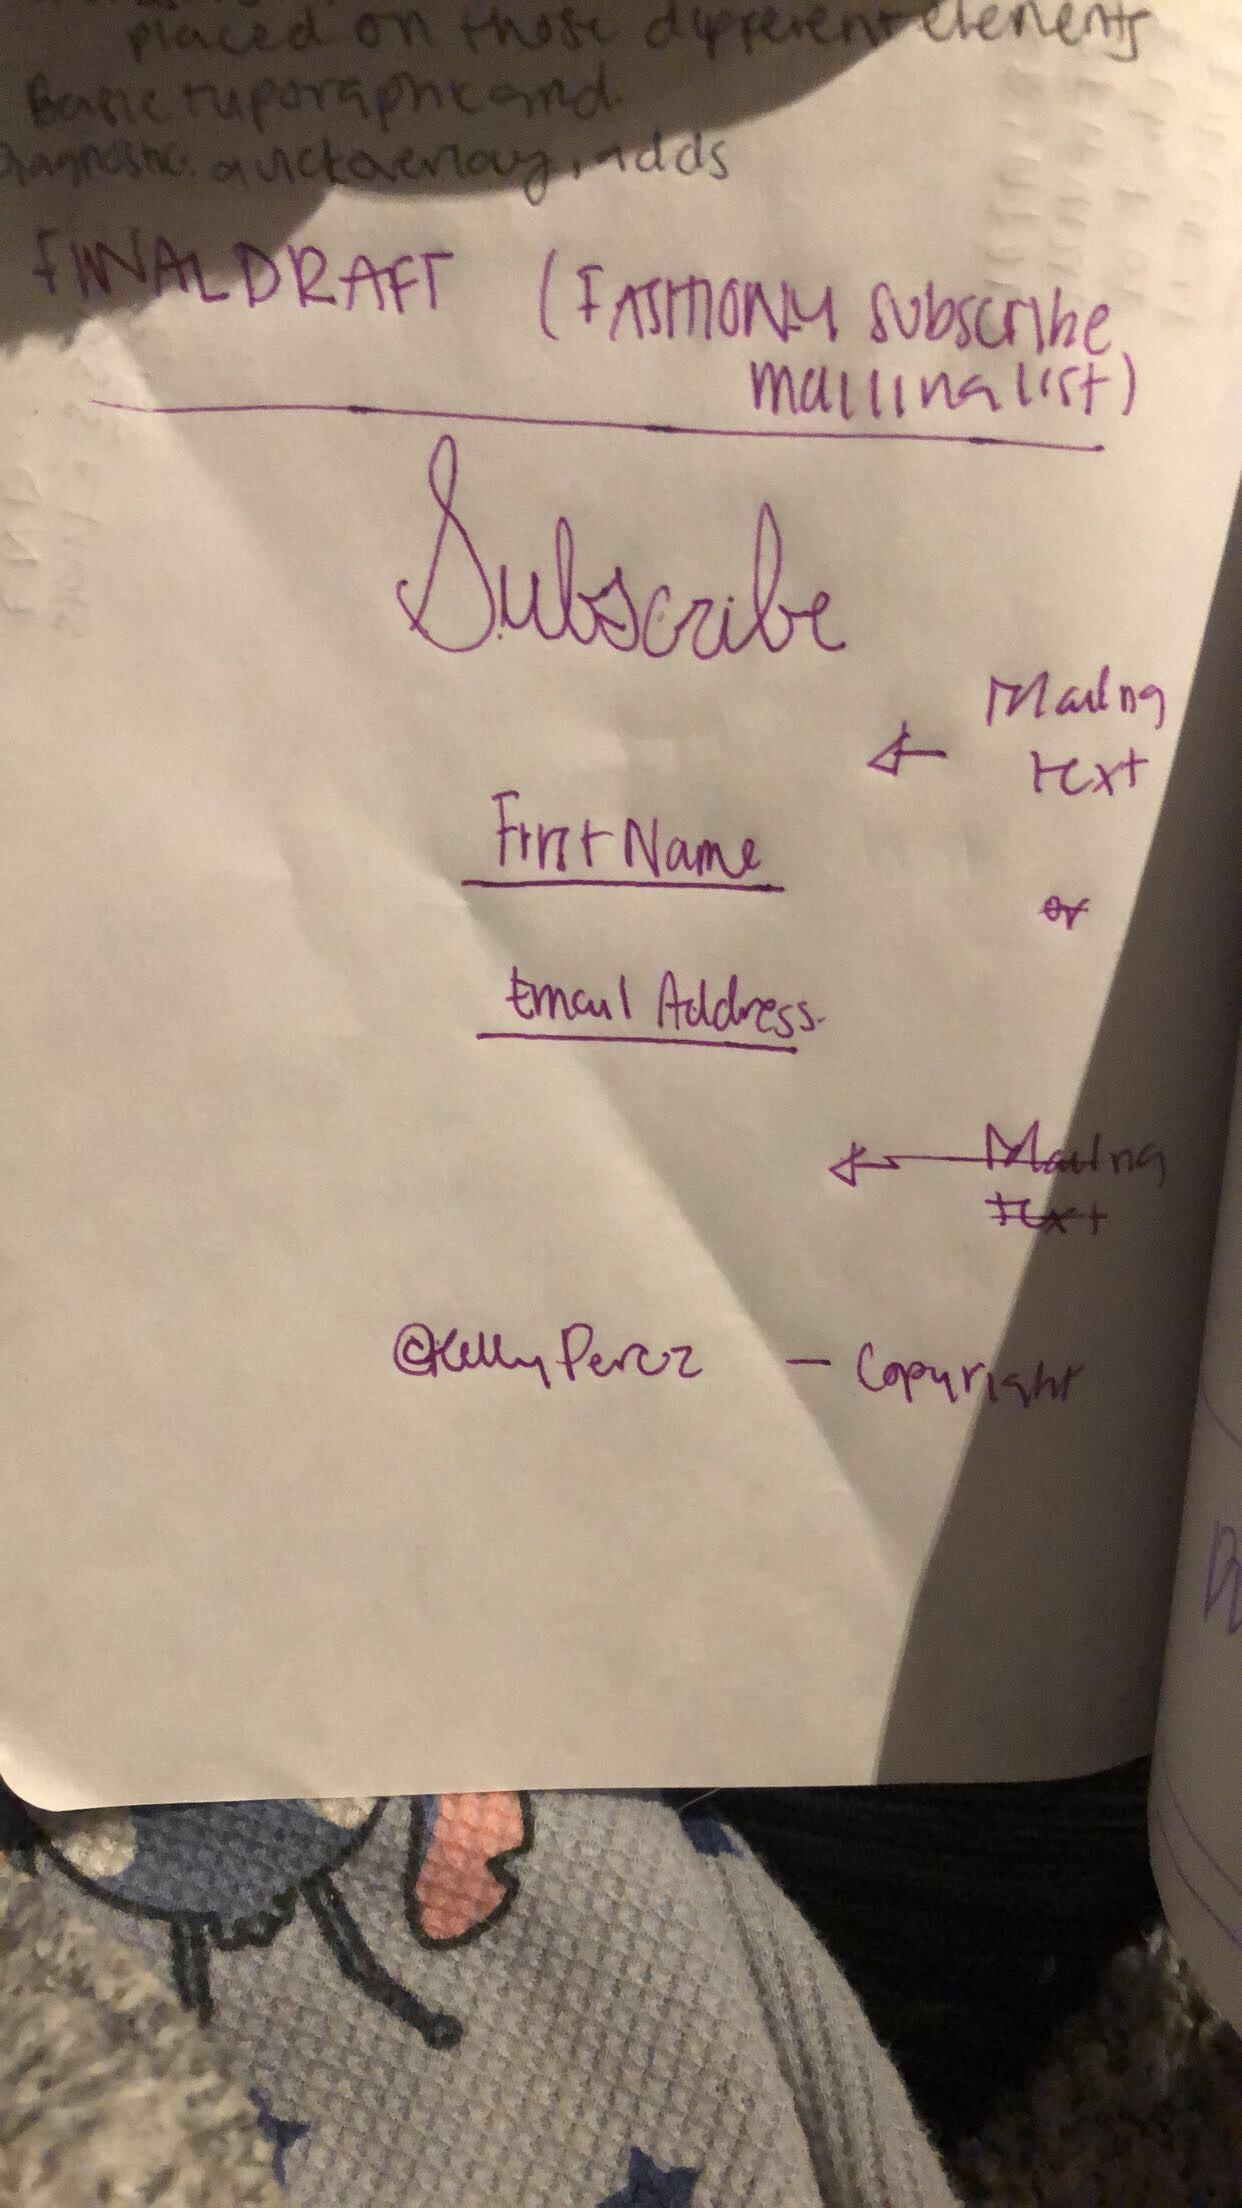 placed on those different elements
Basic typographic and
Diagnostic. quick overlay, adds
FINAL DRAFT (FASHIONY subscribe
mailling list)
Subscribe
Mailng
text
First Name
or
Email Address.
Mailng
text
©Kelly Perez — Copyright